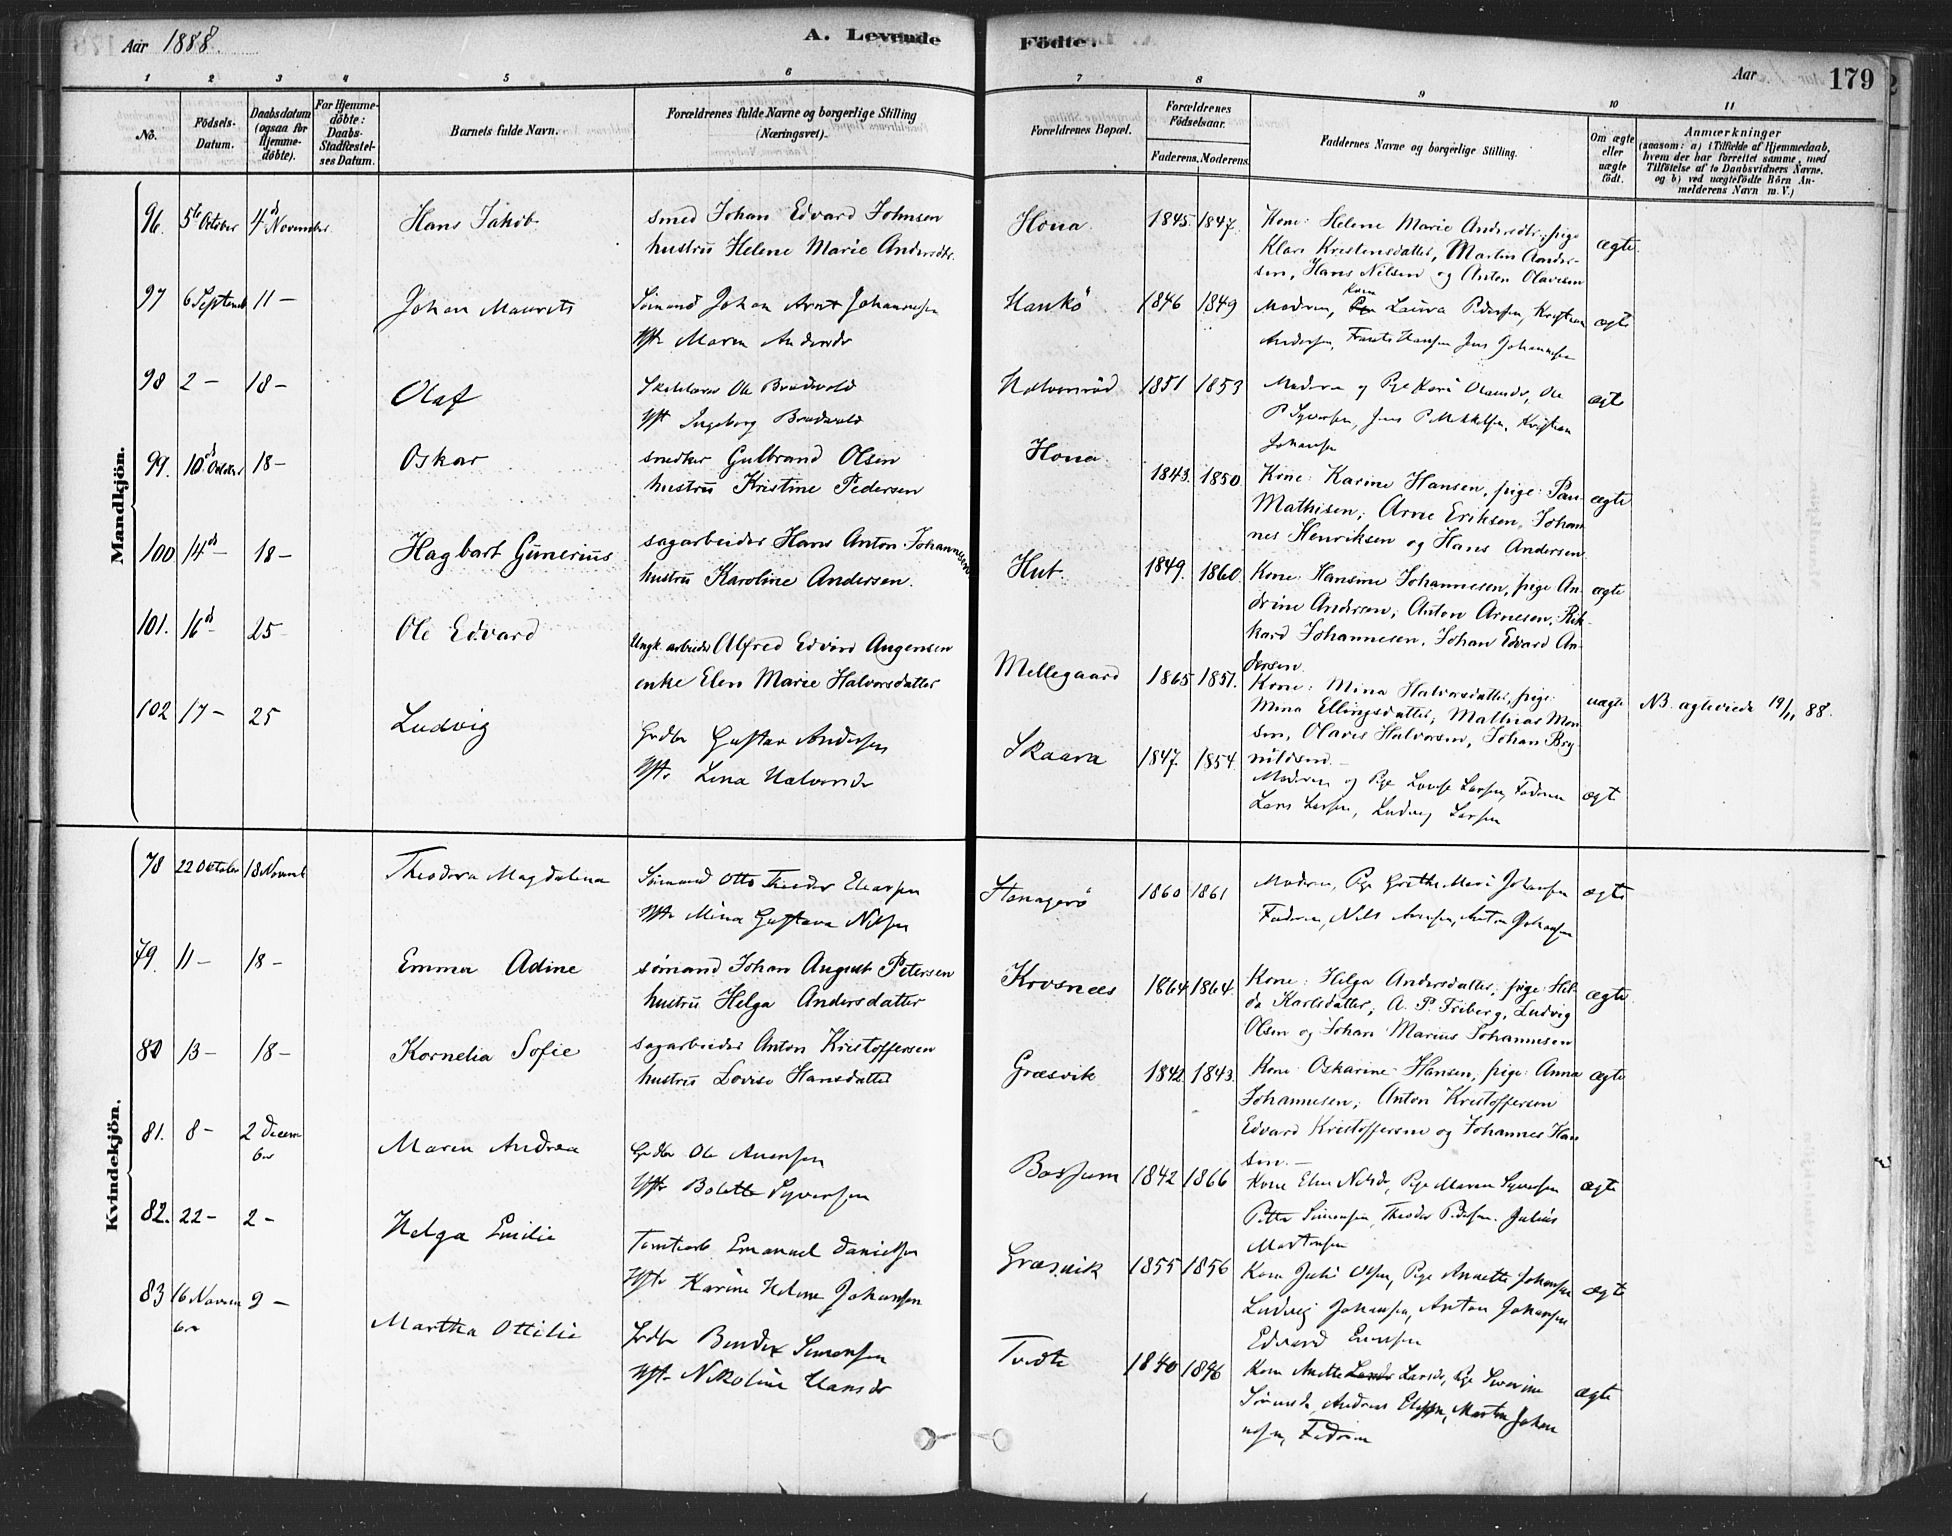 Aar 1888.
A. Levende
Födte.
Aar
179
1 2 3 4 5 6 7 8 9 10 11
No.
Födsels-
Datum.
Daabsdatum
(ogsaa for
Hjemme-
döbte).
For Hjemme-
döbte:
Daabs-
Stadfæstel-
ses Datum.
Barnets fulde Navn.
Forældrenes fulde Navne og borgerlige Stilling
(Næringsvei).
Forældrenes Bopæl.
Forældrenes
Födselsaar.
Faderens. Moderens.
Faddernes Navne og borgerlige Stilling.
Om ægte
eller
uægte
födt.
Anmærkninger
(saasom: a) i Tilfælde af Hjemmedaab,
hvem der har forrettet samme, med
Tilföielse af to Daabsvidners Navne,
og b) ved uægtefödte Börn An-
melderens Navn m. V.)
Mandkjön.
96. 5te October 4d November Hans Jakob
smed Johan Edvard Johnsen
hustru Helene Marie Andersdtr.
Hona 1845. 1847.
Kone: Helene Marie Andersdtr, pige
Klara Kristensdatter, Martin Ander-
sen, Hans Nilsen og Anton Olavesen
ægte
97 6 Septemb 11 - Johan Maurits
Sömand Johan Arnt Johannesen
Hstr Maren Andersdr
Hankö 1846 1849
Moderen, Kone Laura Pedersen, Kristian
Andersen, Frants Hansen Jens Johannesen
ægte
98 2 - 18 - Olaf
Skolelærer Ole Bradvold
Hst Ingeborg Bradvold
Halvorsröd 1851 1853
Moderen og Pge Kari Olausdr, Ole
P Syversen, Jens P Mikkelsen, Kristian
Johansen
ægte
99. 10d October 18 - Oskar
snedker Gulbrand Olsen
hustru Kristine Pedersen
Hona 1843. 1850
Kone: Karine Hansen, pige: Pau-
Mathisen, Arne Eriksen, Johan-
nes Henriksen og Hans Andersen
ægte
100. 14d - 18 - Hagbart Gunerius
sagarbeider Hans Anton Johannesen
hustru Karoline Andersen.
Hut 1849. 1860
Kone: Hansine Johannesen, pige An-
drine Andersen, Anton Arnesen, Rik-
kard Johannesen, Johan Edvard An-
dersen.
ægte
101. 16d - 25 - Ole Edvard
Ungk. arbeider Alfred Edvard Augensen
enke Elen Marie Halvorsdatter
Mellegaard 1865 1857.
Kone: Mina Halvorsdatter, pige:
Mina Ellingsdatter, Mathias Mon-
sen, Olavis Halvorsen, Johan Bry-
nildsen. -
uægte
NB. ægteviede 19/11 88.
102 17 - 25 Ludvig
Grdbr Gustav Andersen
Hstr Lina Halvorsdr
Skaara 1847. 1854
Moderen og Pge Lovise Larsen, Faderen
Lars Larsen, Ludvig Larsen
ægt
Kvindekjön.
78 22 October 18 Novemb Theodora Magdalena
Sömand Otto Theodor Eliassen
Hstr Mina Gustava Nilsen
1860 1861
Moderen, Pge Grethe Mari Johansen
Faderen, Nils Arnesen, Anton Johansen
ægte
79. 11 - 18 - Emma Adine
sømand Johan August Petersen
hustru Helga Andersdatter
Krosnæs 1864. 1864.
Kone: Helga Andersdatter, pige: Hil-
da Karlsdatter, A. P. Friberg, Ludvig
Olsen og Johan Marius Johannesen
ægte
80 13 - 18 - Kornelia Sofie
sagarbeider Anton Kristoffersen
hustru Lovise Hansdatter
Græsvik 1842. 1843.
Kone: Oskarine Hansen, pige: Anna
Johannesen, Anton Kristoffersen
Edvard Kristoffersen og Johannes Han-
sen. -
ægte
81. 8 - 2 Decem
ber
Maren Andrea
Grdbr Ole Anensen
Hstr Bolette Syversen
1842 1866
Kone Elen Nilsdr, Pge Maren Syversen
Petter Simensen, Theodor Pedersen. Julius
Mortensen
ægte
82. 22 - 2 - Helga Emilie
Tomtearb. Emanuel Danielsen
Hstr Karine Helene Johansen
Græsvik 1855 1856
Kone Julie Olsen, Pige Annette Johansen
Ludvig Johansen, Anton Johansen
Edvard Evensen
ægt
83 16 Novem
ber
9 -
Martha Ottilie
Grdbr Bendix Simensen
Hstr. Nikoline Hansdr
Tvete 1840 1846
Kone Anette Larsdr, Pge Severine
Andreas Martin Johan
nesen, Faderen
ægte